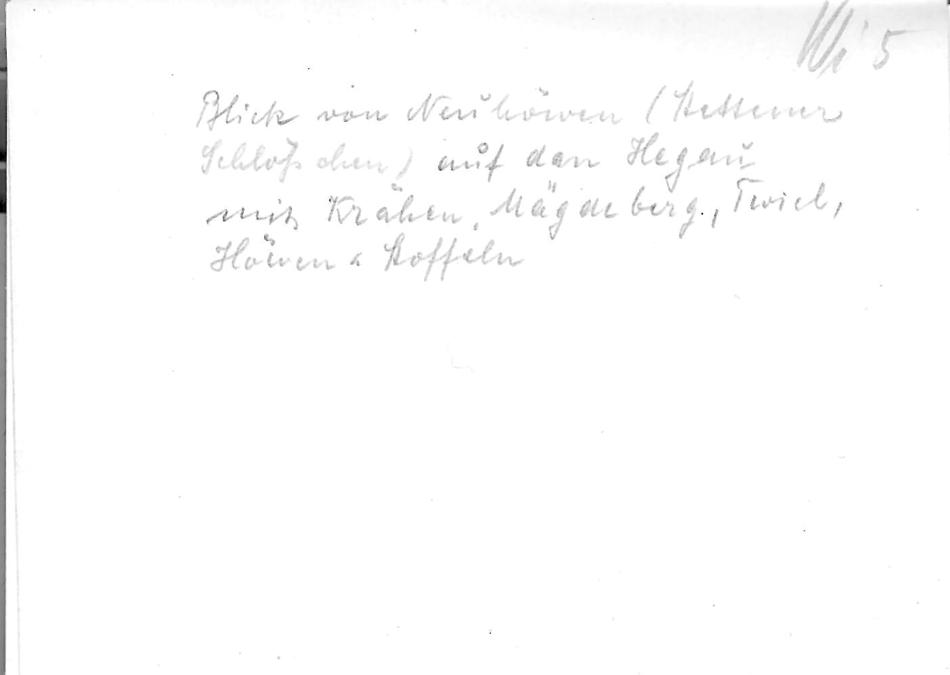 Wi 5
Blick von Neuhöwen (Stettener
Schlößchen) auf den Hegau
mit Krähen, Mägdeberg, Twiel,
Höwen & Stoffeln